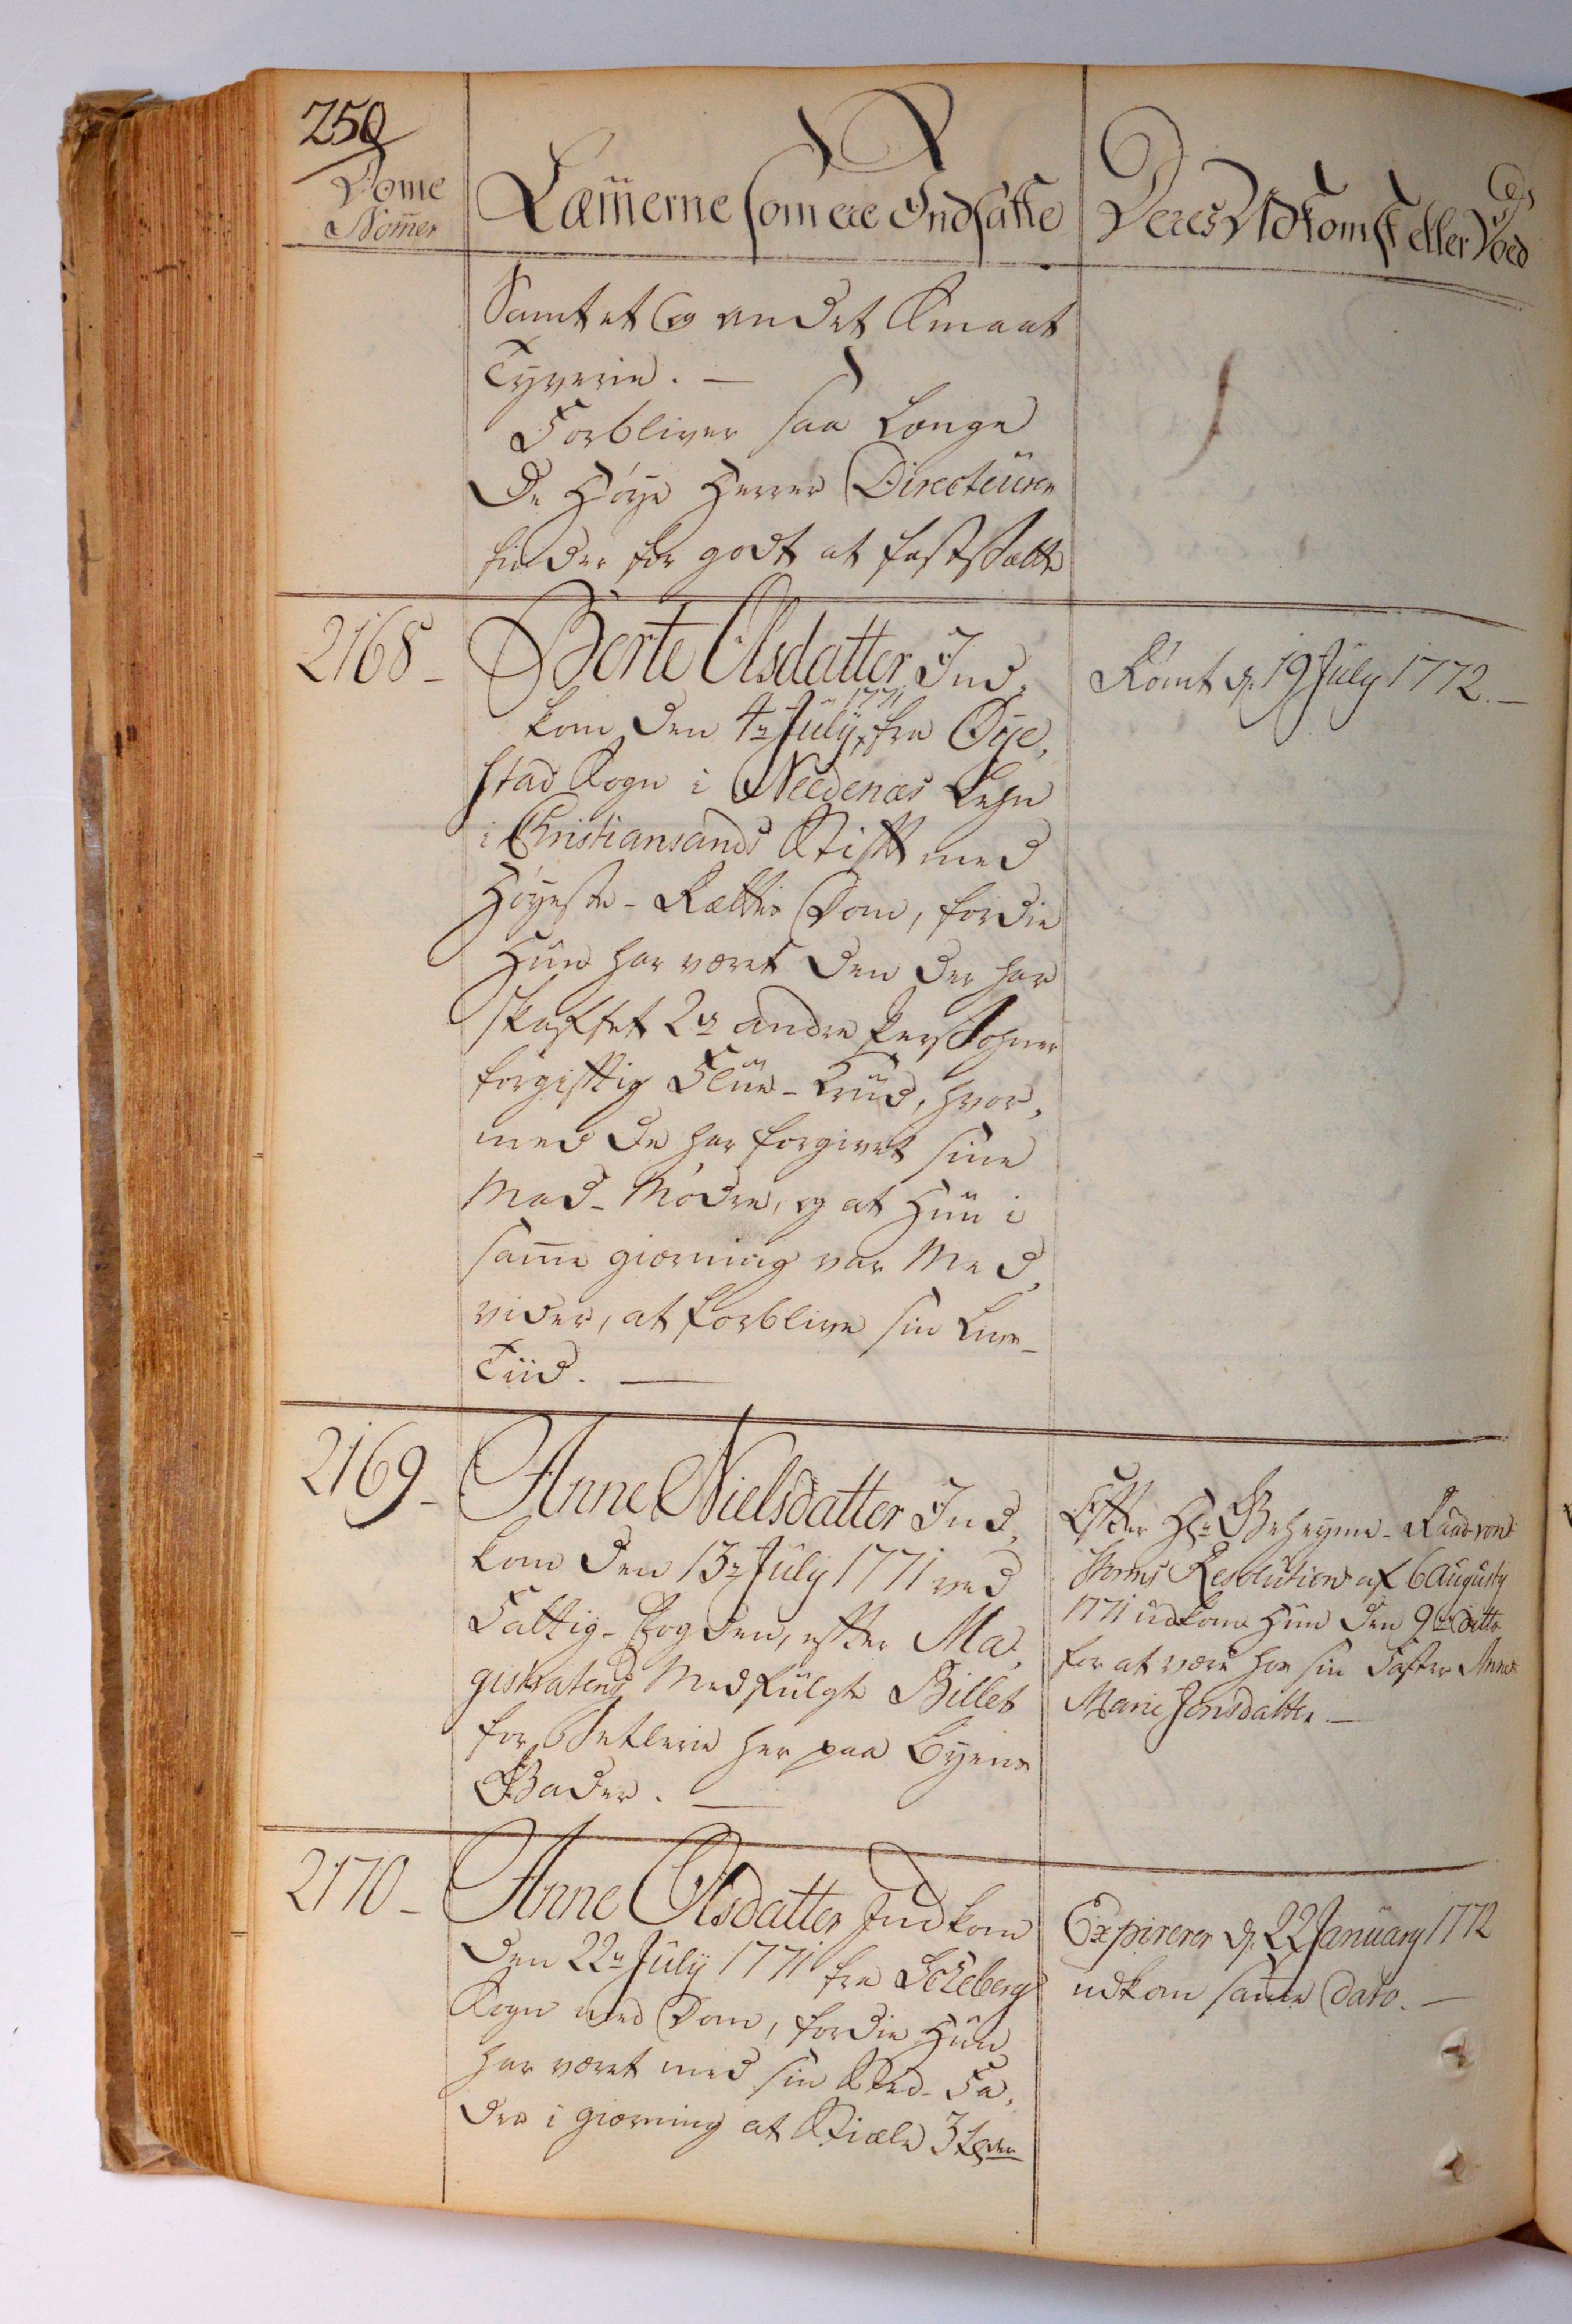 250
Dome
Nom̄er
Læm̄erne som ere Indsatte
Deres Udkomst eller Død
Samt et og andet Smaat
Tyverie. —
Forbliver saa Længe
De Høye Herrer Directeürer
finder for godt at fastsætte
2168 -
Berte Olsdatter Ind,
kom Den 4de Jüly 1771 fra Øye,
stad Sogn i Needenæs Lehn
i Christiansands Stift med
Høyeste-Rættes Dom, fordie
Hün har været Den der har
skaffet 2de andre Persohner
forgiftig Flüe-Krüd, hvor,
med De har forgivet sine
Mad-Mødre, og at Hün i
sam̄e giærning var Med,
vider, at forblive sin Lives-
Tiid. —
Rømt d. 19 Jüly 1772. —
2169 -
Anne Nielsdatter Ind,
kom Den 13de Jüly 1771 ved
Fattig-Fogden, efter Ma,
gistratens Medfülgte Billet
for Betlerie her paa Byens
Gader. —
Efter Hr. Geheyme-Raad von
Storms Resolution af 6 Augusty
1771 udkom Hün Den 9de ditto
for at være hos sin Faster Anne
Marie Jensdatter. —
2170 -
Anne Olsdatter Indkom
Den 22de Jüly 1771 fra
Sogn med Dom, fordie Hün
har været med sin Sted-Fa,
der i giærning at Stiæle 3
Expirerer d. 22 Janüary 1772
udkom sam̄e Dato. —